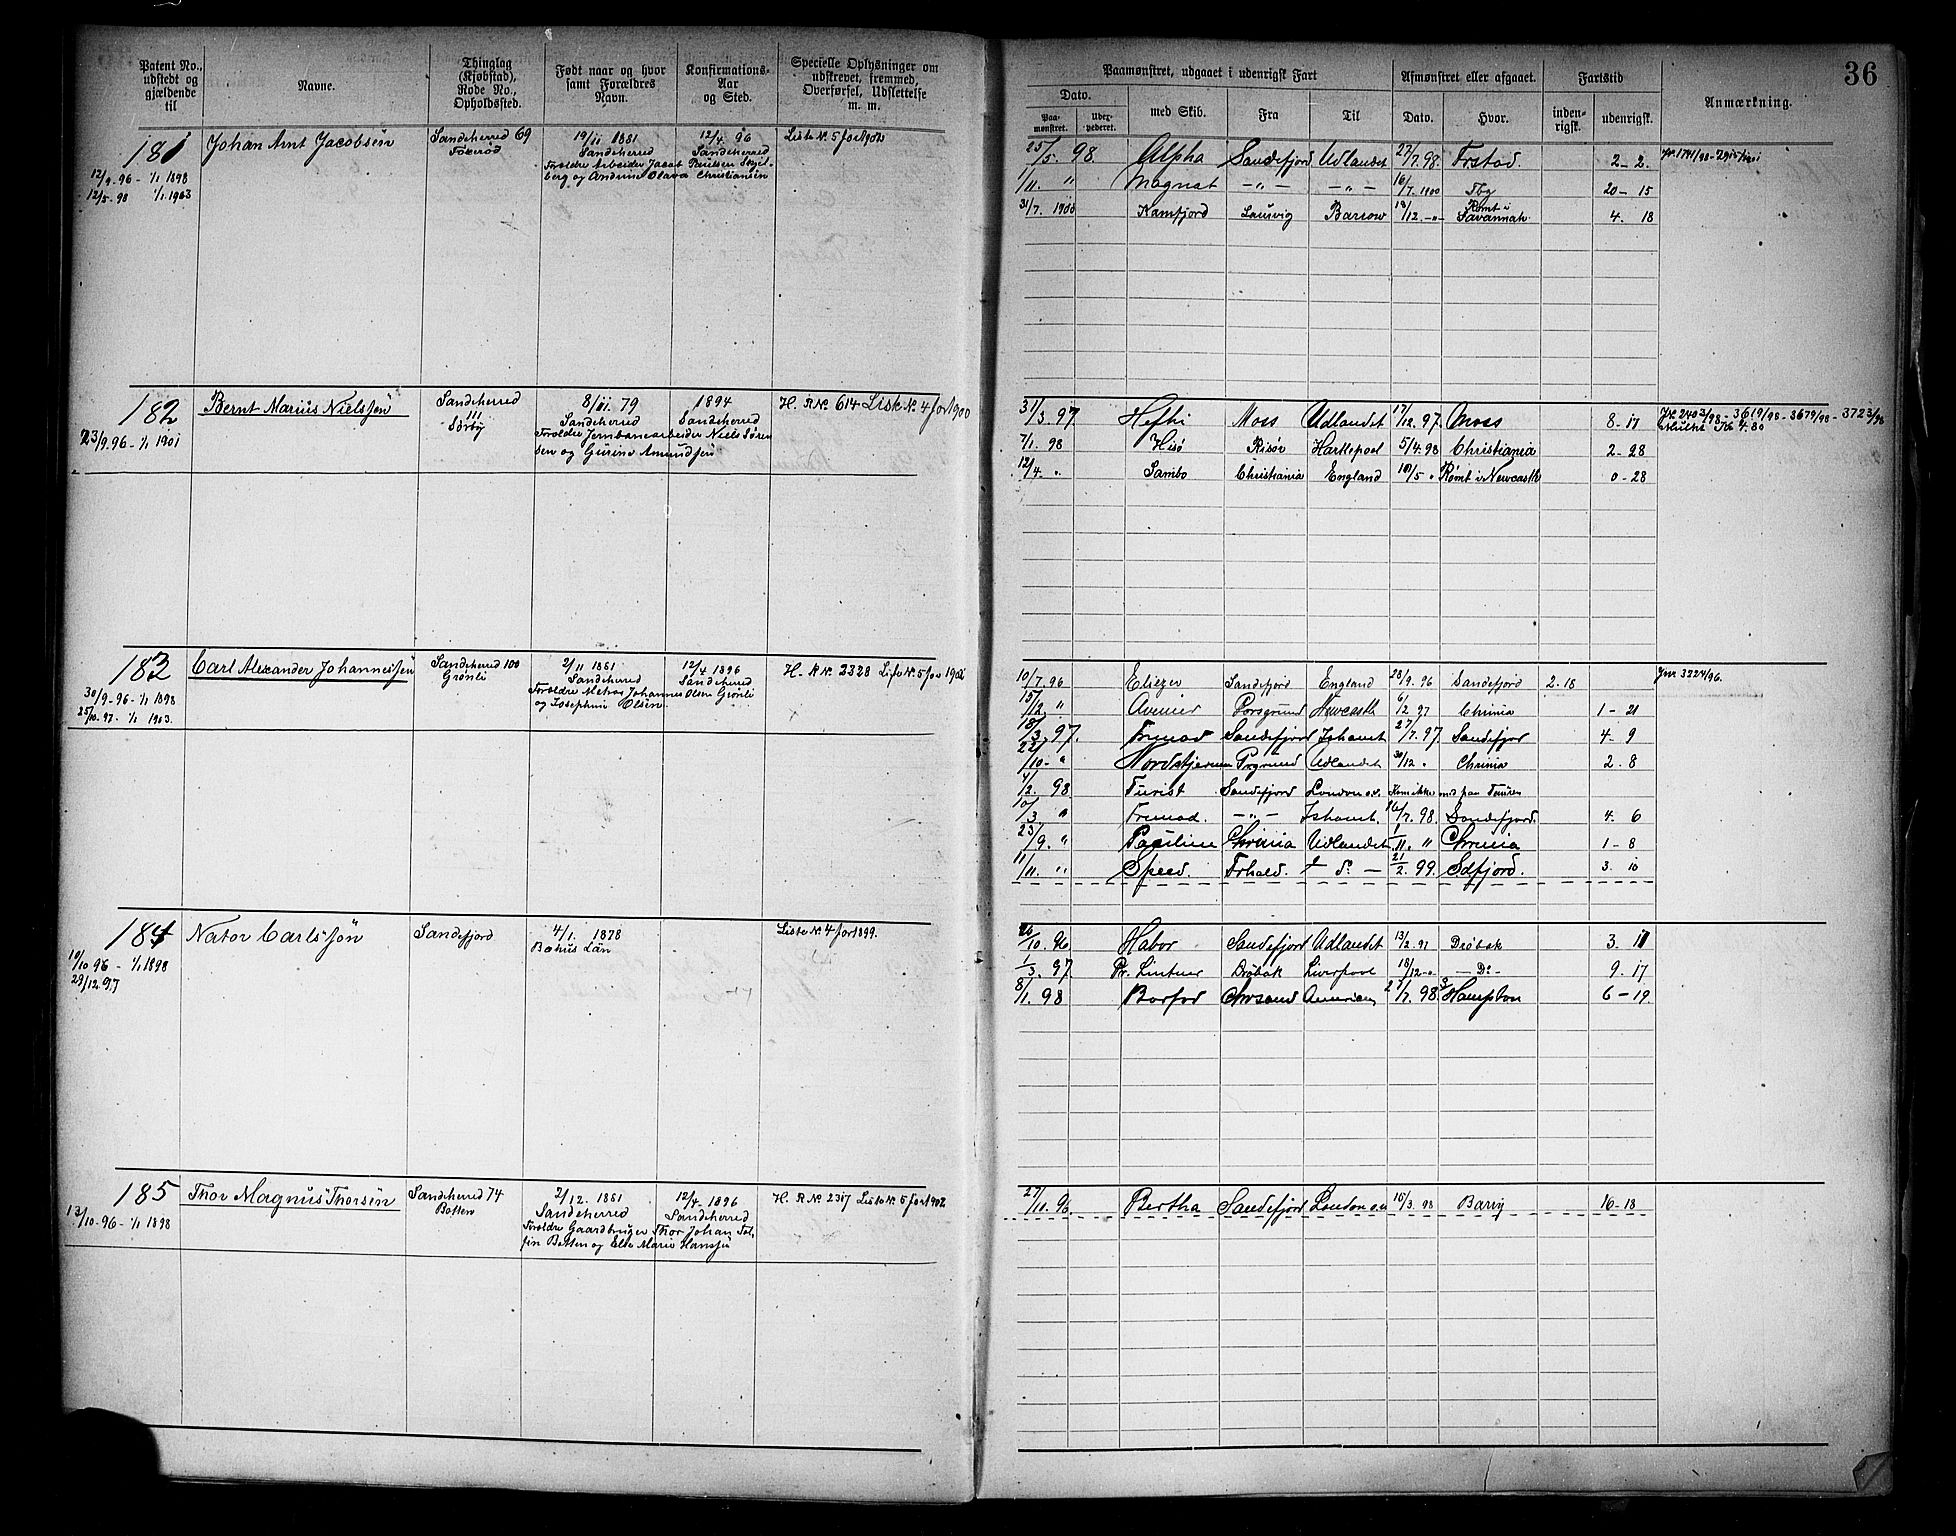 36
Patent No., udstedt og gjældende til
Navne.
Thinglag (Kjøbstad), Rode No., Opholdssted.
Født naar og hvor samt Forældres Navn.
Konfirmations-Aar og Sted.
Specielle Oplysninger om udskrevet, fremmed, Overførsel, Udslettelse m. m.
Paamønstret, udgaaet i udenrigsk Fart
Afmønstret eller afgaaet.
Fartstid
Anmærkning.
Dato.
Paa-mønstret.
med Skib.
Fra
Til
Dato.
Hvor.
inden-rigsk.
udenrigsk.
181
Johan Arnt Jacobsen
Sandeherred 69
19/11 1881
12/4 96
Liste N. 5 for 1902
Sandeherred
Sandeherred
12/9.96 - 1/1 1898
Forældre Arbeider Jacob Paulsen
12/5-98 1/1.1903
berg og Andrine Olava Christiansen
25/5 98 Alpha Sandefjord Udlandet 27/7.98 Frstad. 2-2.
1/11. " Magnat -"- -"- 16/7.1900 Tbg 20-15
31/7. 1900 Kamfjord Laurvig Barrow 18/12.-"- Rømt i Savannah. 4. 18
182
Bernt Marius Nielssen
Sandeherred
8/11.79
1894
H. R No. 614 Liste N. 4 for 1900
111
Sandeherred
Sandeherred
Sørby
23/9.96 - 1/1 1901
Forældre Jernbanearbeider Niels Søren
sen og Gurine Amundsen
31/3.97 Hefhi Moss Udlandet 17/12.97 Moss 8-17
2403/98 - 3619/98 - 3679/98 - 3723/98
7/1. 98 Hisö Risör Hartlepool 5/4.98 Christiania 2-28
12/4. " Sambo Christiania England 10/5 " Rømt i Newcastle 0-28
183
Carl Alexander Johannessen
Sandeherred 100
2/11 1881
12/4 1896
H. R No. 2328 Liste N. 5 for 1902
Grønli
Sandeherred
Sandeherred
30/9-96 - 1/1 1898
Forældre Johannes Olsen Grönli
25/10.97. - 1/1 1903.
og Josephine Olsen
10/7.96 Eliezer Sandefjord England 28/9.96 Sandefjord 2-18
Jnr 3224/96.
15/12 " Avenir Porsgrund Newcastle 6/2 97 Chrinia 1-21
18/3.97. Fremad Sandefjord Ishavet 27/7.97. Sandefjor 4-9
22/10-" Nordstjernen Prgrund Udlandet 30/12 " Chrinia 2.8
4/2. 98 Turist Sandefjord London o.v. Kom ikke med paa Turen
10/3 " Fremad. -"- Ishavet. 16/7.98. Sandefjord. 4. 6
23/9. " Pauline Chrinia Udlandet 1/11. " Chrinia 1-8
11/11. " Speed. Frhald. - do - 21/2.99. Sdfjord. 3. 10
184
Nator Carlssön
Sandefjord
4/1. 1878
Liste N. 4 for 1899.
Bohus Län
10/10 96 - 1/1 1898
29/12.97
26/10.96 Habor Sandefjord Udlandet 13/2.97 Drøbak 3. 11
1/3.97 Pr. Lintner Drøbak Liverpool 18/12-" - Do - 9.17
8/1.98 Chrsand 27/7.98 Hampton 6-19
185
Thor Magnus Thorsen
Sandeherred 74
2/12. 1881
12/4 1896
H. R No. 2317 Liste N. 5 for 1902.
Botten
Sandeherred
Sandeherred
13/10-96 - 1/1 1898
Forældre Gaardbruger Thor Johan
sen Botten og Elle Marie Hanssen
27/10.96 Bertha Sandefjord London o.v. 15/3 98 Barry 16-18